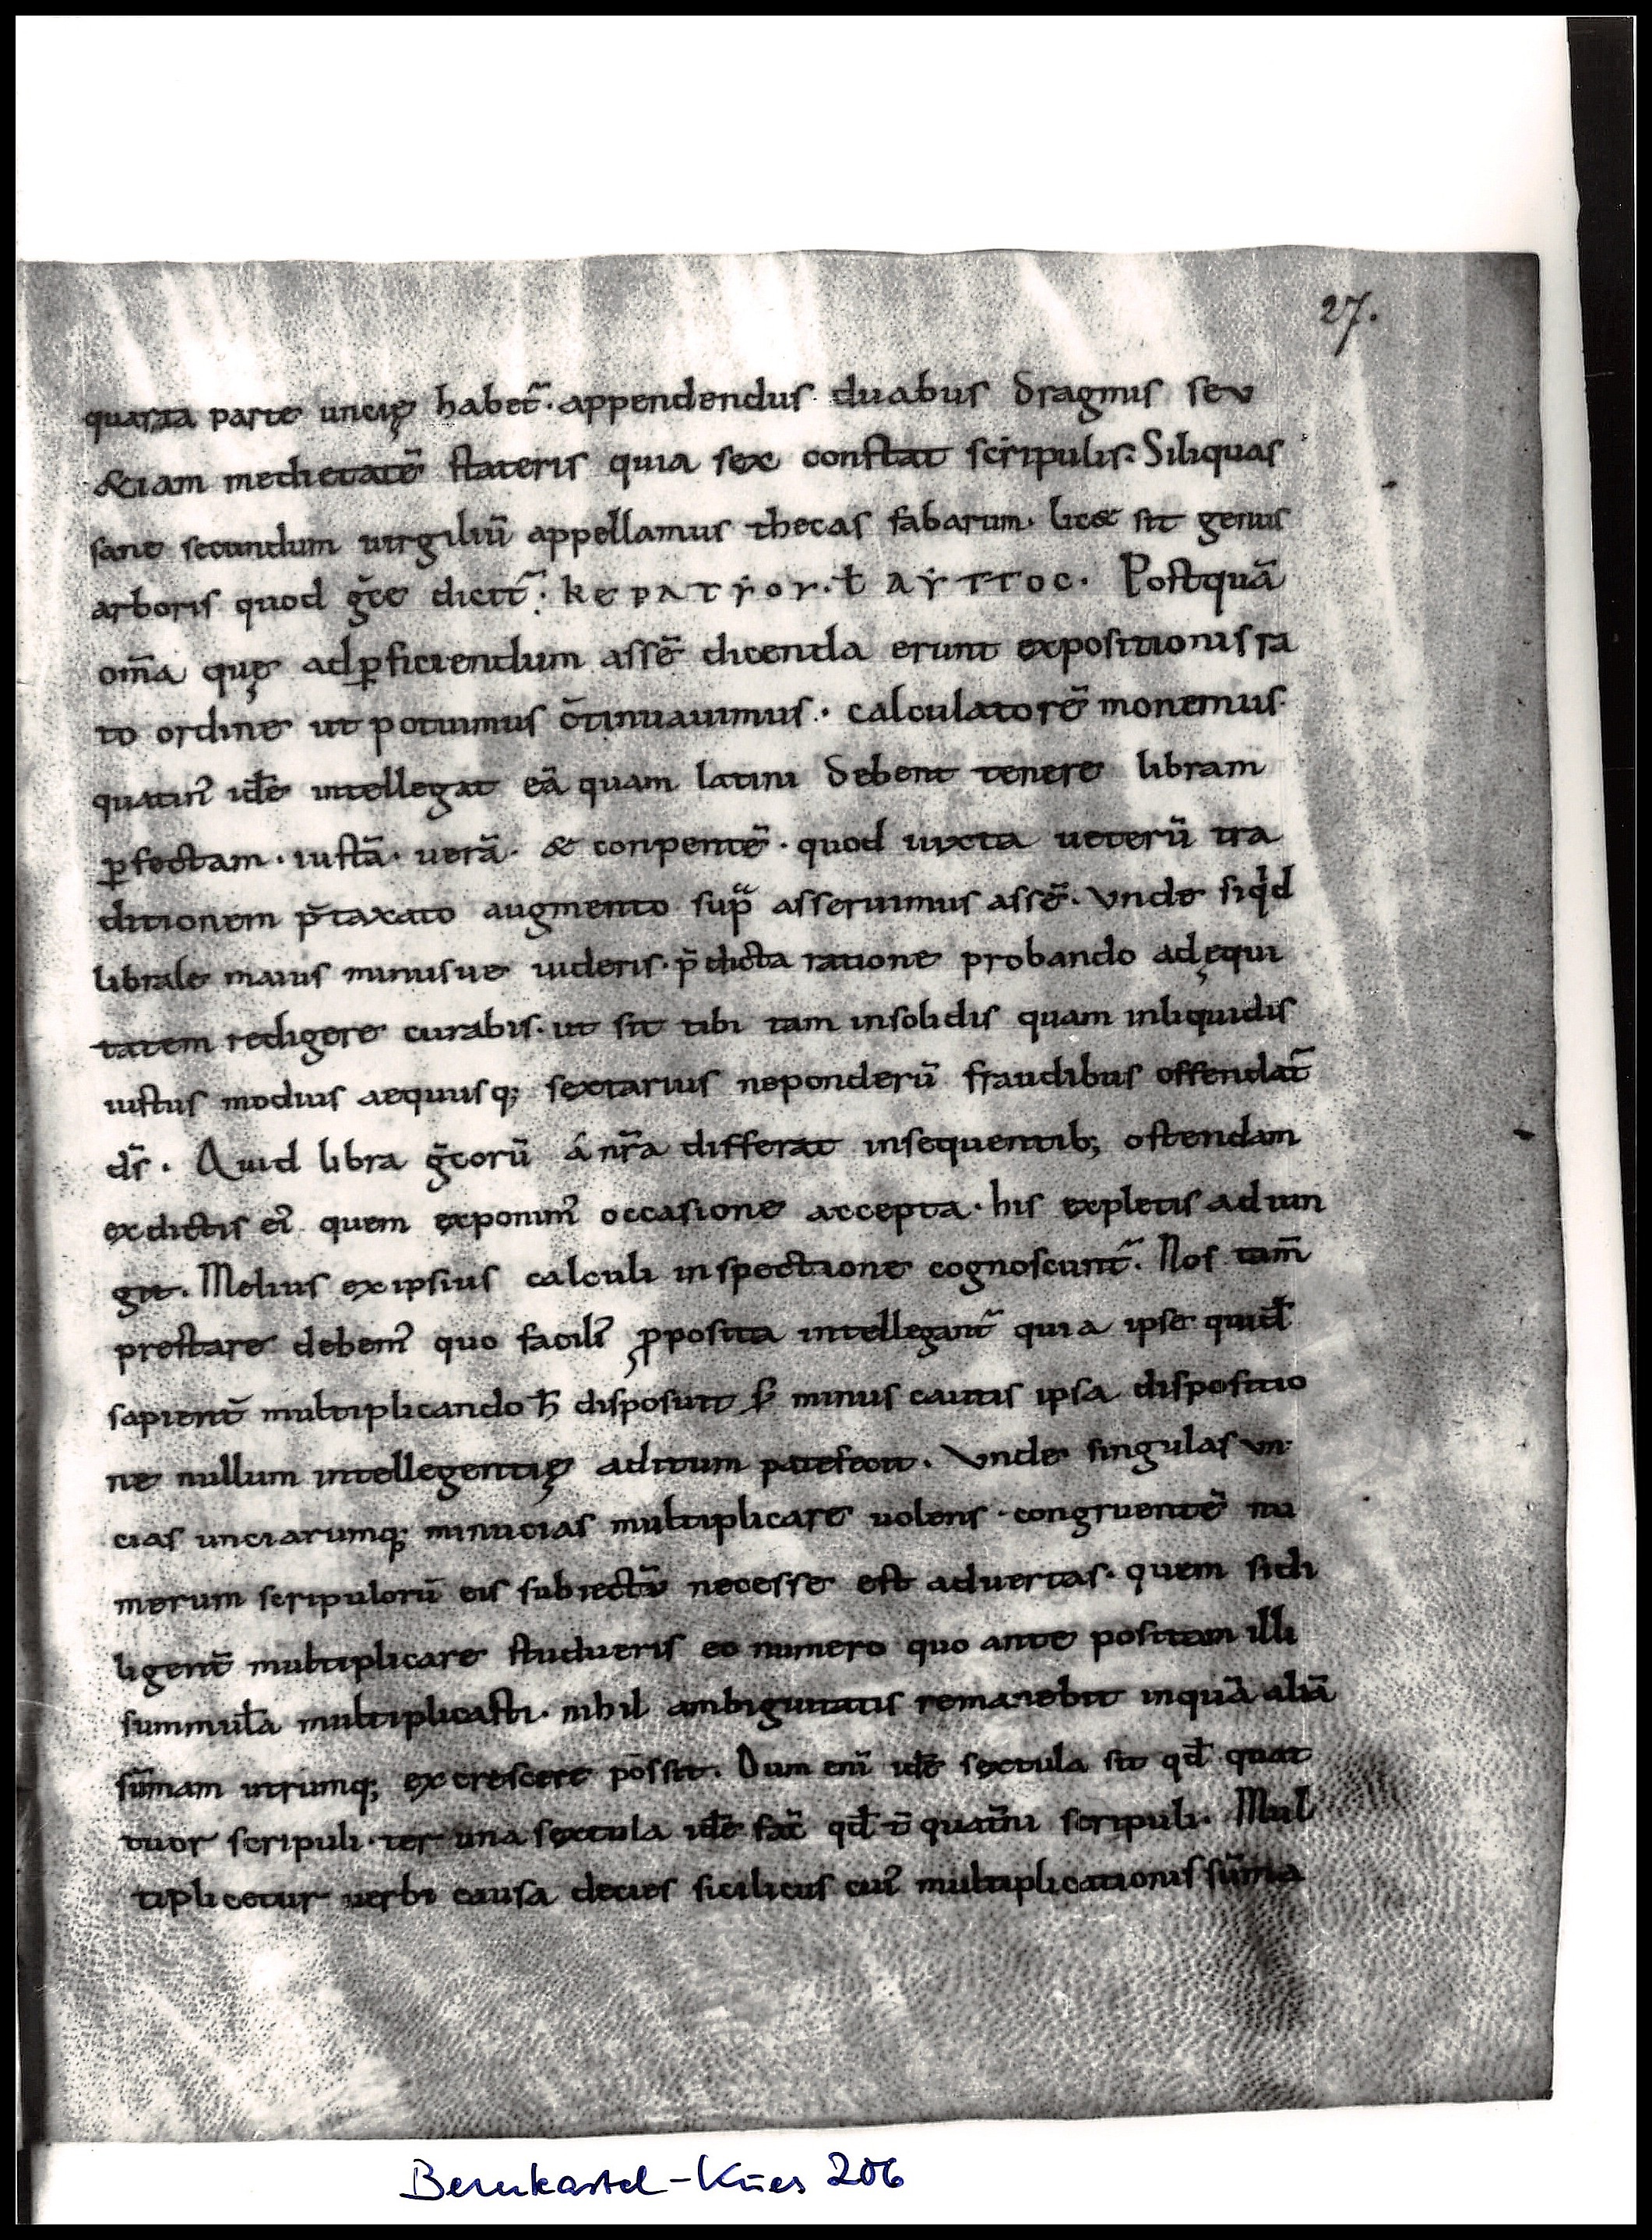 27.
quarta parte uncię habet̃. appendendus duabus dragmis seu
&iam medietatē stateris quia sex constat scripulis. Siliquas
sane secundum uirgiliū appellamus thecas fabarum. lic& sit genus
arboris quod g̅ce dicit̃. κερατιον. ł Postquā
om̅a quę adꝑficiendum assē dicenda erunt expositionis ra
to ordine ut potuimus c̅tinuauimus. calculatorē monemus.
quatin᾿ idē intellegat eā quam latini debent tenere libram
ꝑfectam. iustā. uerā. & conpentē. quod iuxta ueterū tra
ditionem p̅taxato augmento sup̃ asseruimus assē. Vnde siqͥd
librale maius minusue uideris. p̅dicta ratione probando adęqui
tatem redigere curabis. ut sit tibi tam insolidis quam inliquidis
iustus modius aequusq; sextarius neponderū fraudibus offendat̃
d̅s. Quid libra g̅corū á nr̅a differat insequentib; ostendam
exdictis ei᾿ quem exponim᾿ occasione accepta. his expletis adiun
git. Melius exipsius calculi inspectione cognoscunt̃. Nos tam̅
prestare debem᾿ quo facili᾿ ꝓposita intellegant̃ quia ipse quid̅
sapient̅ multiplicando h̅ disposuit s; minus cautis ipsa dispositio
ne nullum intellegentię aditum patefecit. Vnde singulas un
cias unciarumq; minucias multiplicare uolens. congruentē nu
merum scripulorū eis subiectā necesse est aduertas. quem sidi
ligent̅ multiplicare studueris eo numero quo ante positam illi
summulā multiplicasti. nihil ambiguitatis remanebit inquā aliā
sūmam utrumq; excrescere possit. Dum eni̅ idē sextula sit qd̅ quat
tuor scripuli. ter una sextula idē fac̅ qd̅ t̅ quat̅ni scripuli. Mul
tiplicetur uerbi causa decies sicilicus cui᾿ multiplicationis sūma
Bernkastel-Kues 206